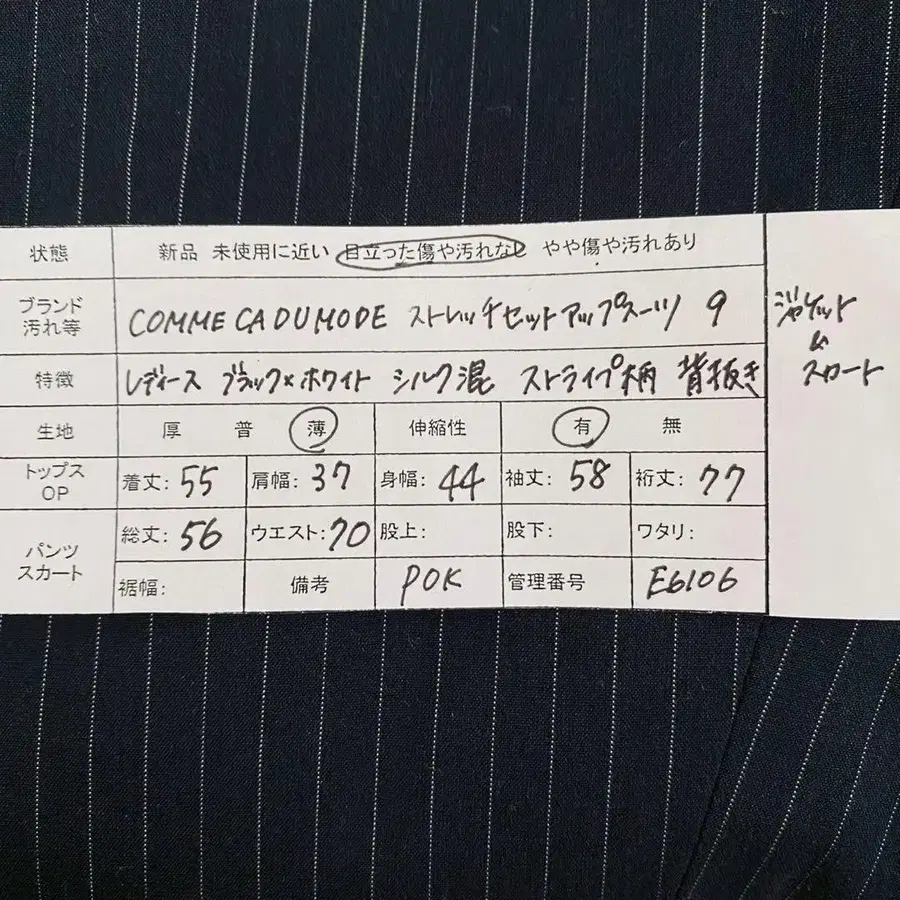 状態 新品 未使用に近い 目立った傷や汚れなし やや傷や汚れあり
ブランド
汚れ等 COMME CA DU MODE ストレッチセットアップスーツ 9
特徴 レディース ブラック×ホワイト シルク混 ストライプ柄 背抜き
生地 厚 普 薄 伸縮性 有 無
トップス
OP 着丈: 55 肩幅: 37 身幅: 44 袖丈: 58 裄丈: 77
パンツ
スカート 総丈: 56 ウエスト: 70 股上: 股下: ワタリ:
裾幅: 備考 POK 管理番号 E6106
ジャケット
スカート